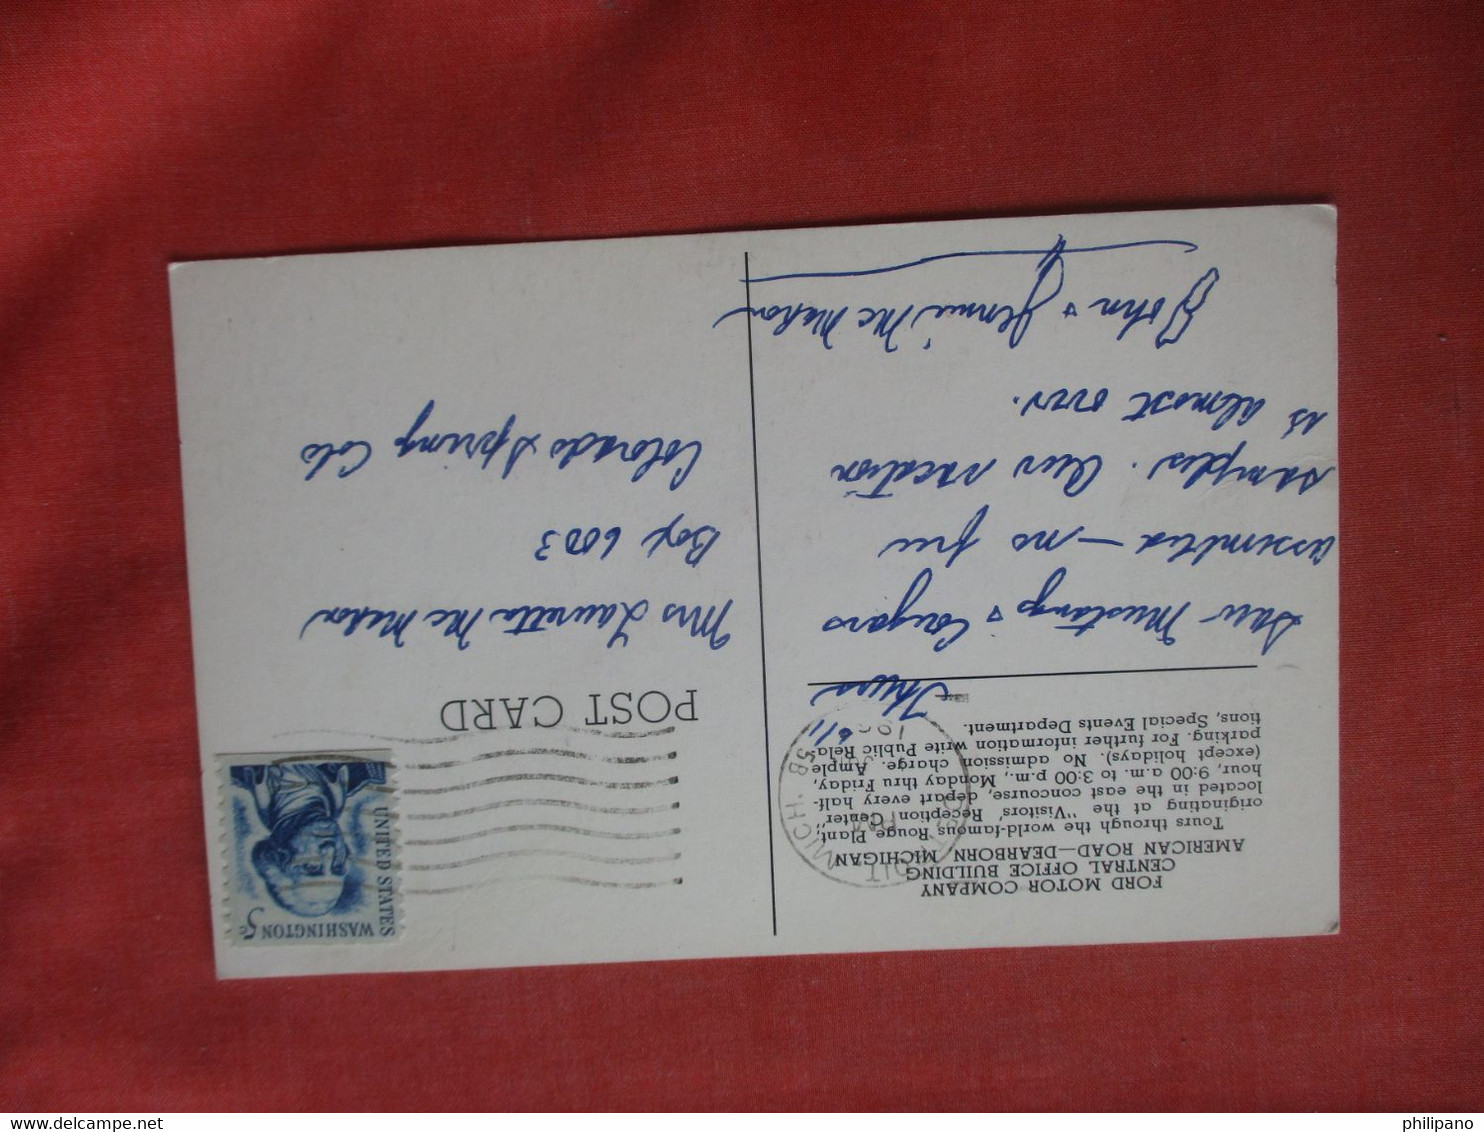 FORD MOTOR COMPANY
CENTRAL OFFICE BUILDING
AMERICAN ROAD—DEARBORN MICHIGAN
Tours through the world-famous Rouge Plant,
originating at the "Visitors' Reception Center,"
located in the east concourse, depart every half-
hour, 9:00 a.m. to 3:00 p.m., Monday thru Friday,
(except holidays). No admission charge. Ample
parking. For further information write Public Rela-
tions, Special Events Department.
Thurs
Saw Mustangs & Cougars
assembled — no free
samples. Our vacation
is almost over.
John & Jennie McMahon
DETROIT MICH
PM
WASHINGTON 5c
UNITED STATES
POST CARD
Mrs Lauretta McMahon
Box 6003
Colorado Spring Colo
philipano